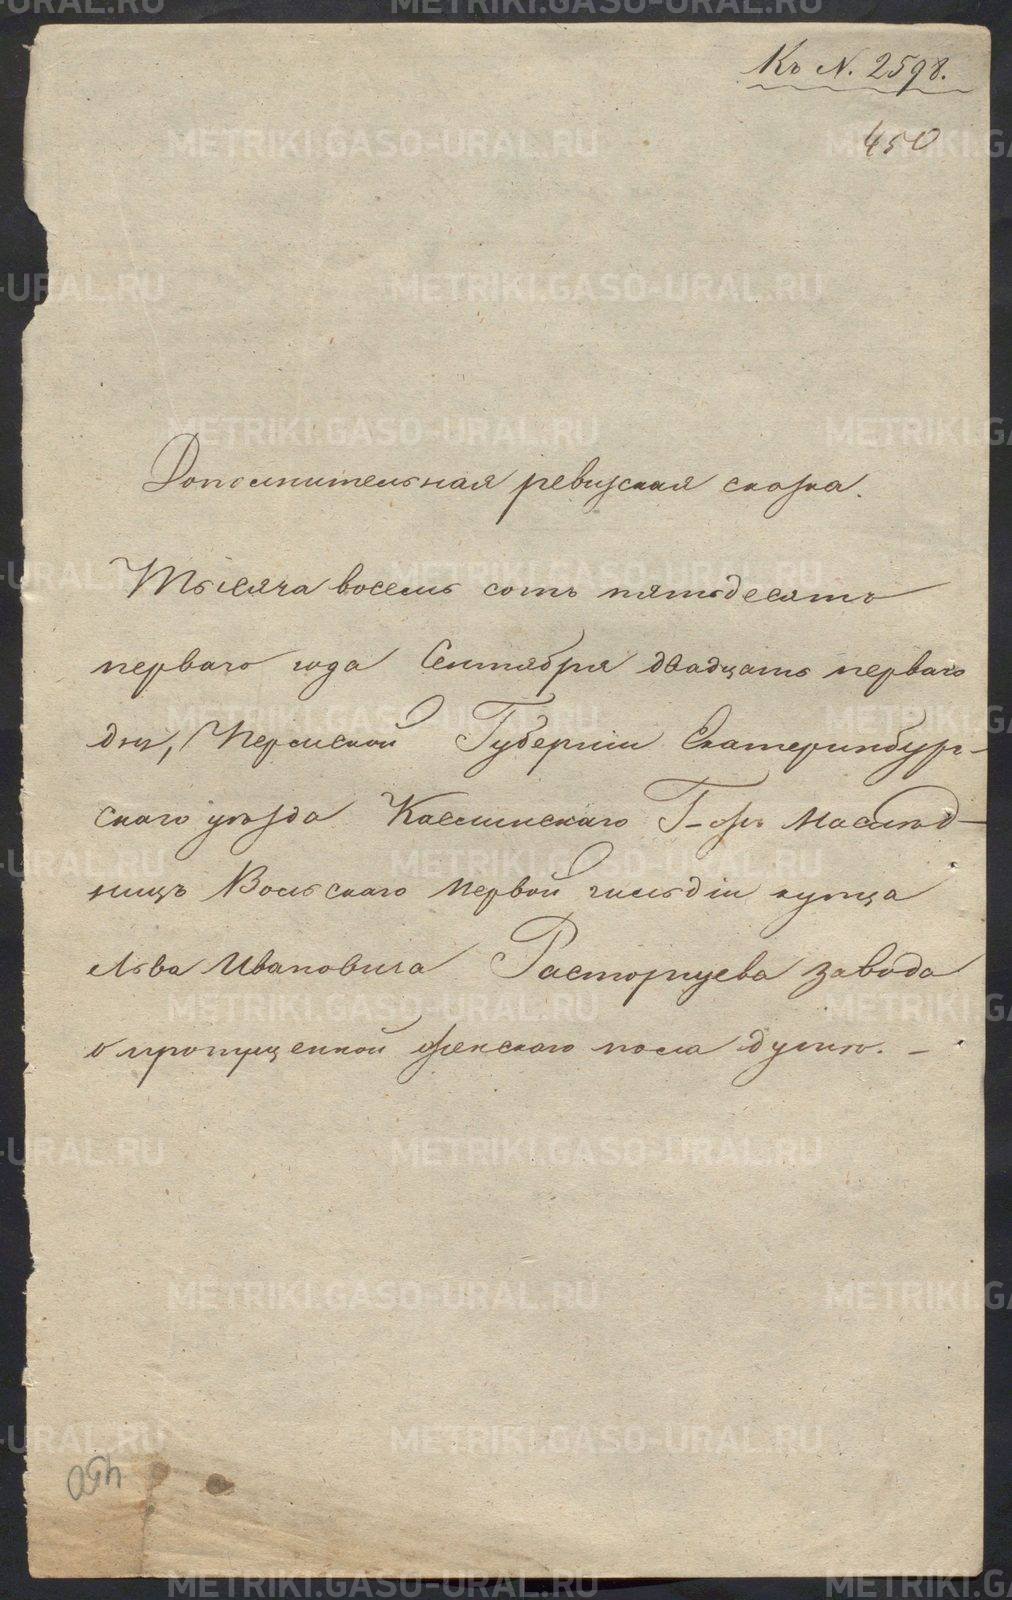 Къ N. 2598.
450
Дополнительная ревизская сказка.
Тысяча восемь сотъ пятьдесятъ
перваго года Сентября двадцать перваго
дня, Пермской Губерніи Екатеринбург-
скаго уѣзда Каслинскаго Г-жъ Наслѣд-
ницъ Вольскаго первой гильдіи купца
Льва Ивановича Расторгуева завода
о пропущенной женскаго пола душѣ. –
450
METRIKI.GASO-URAL.RU